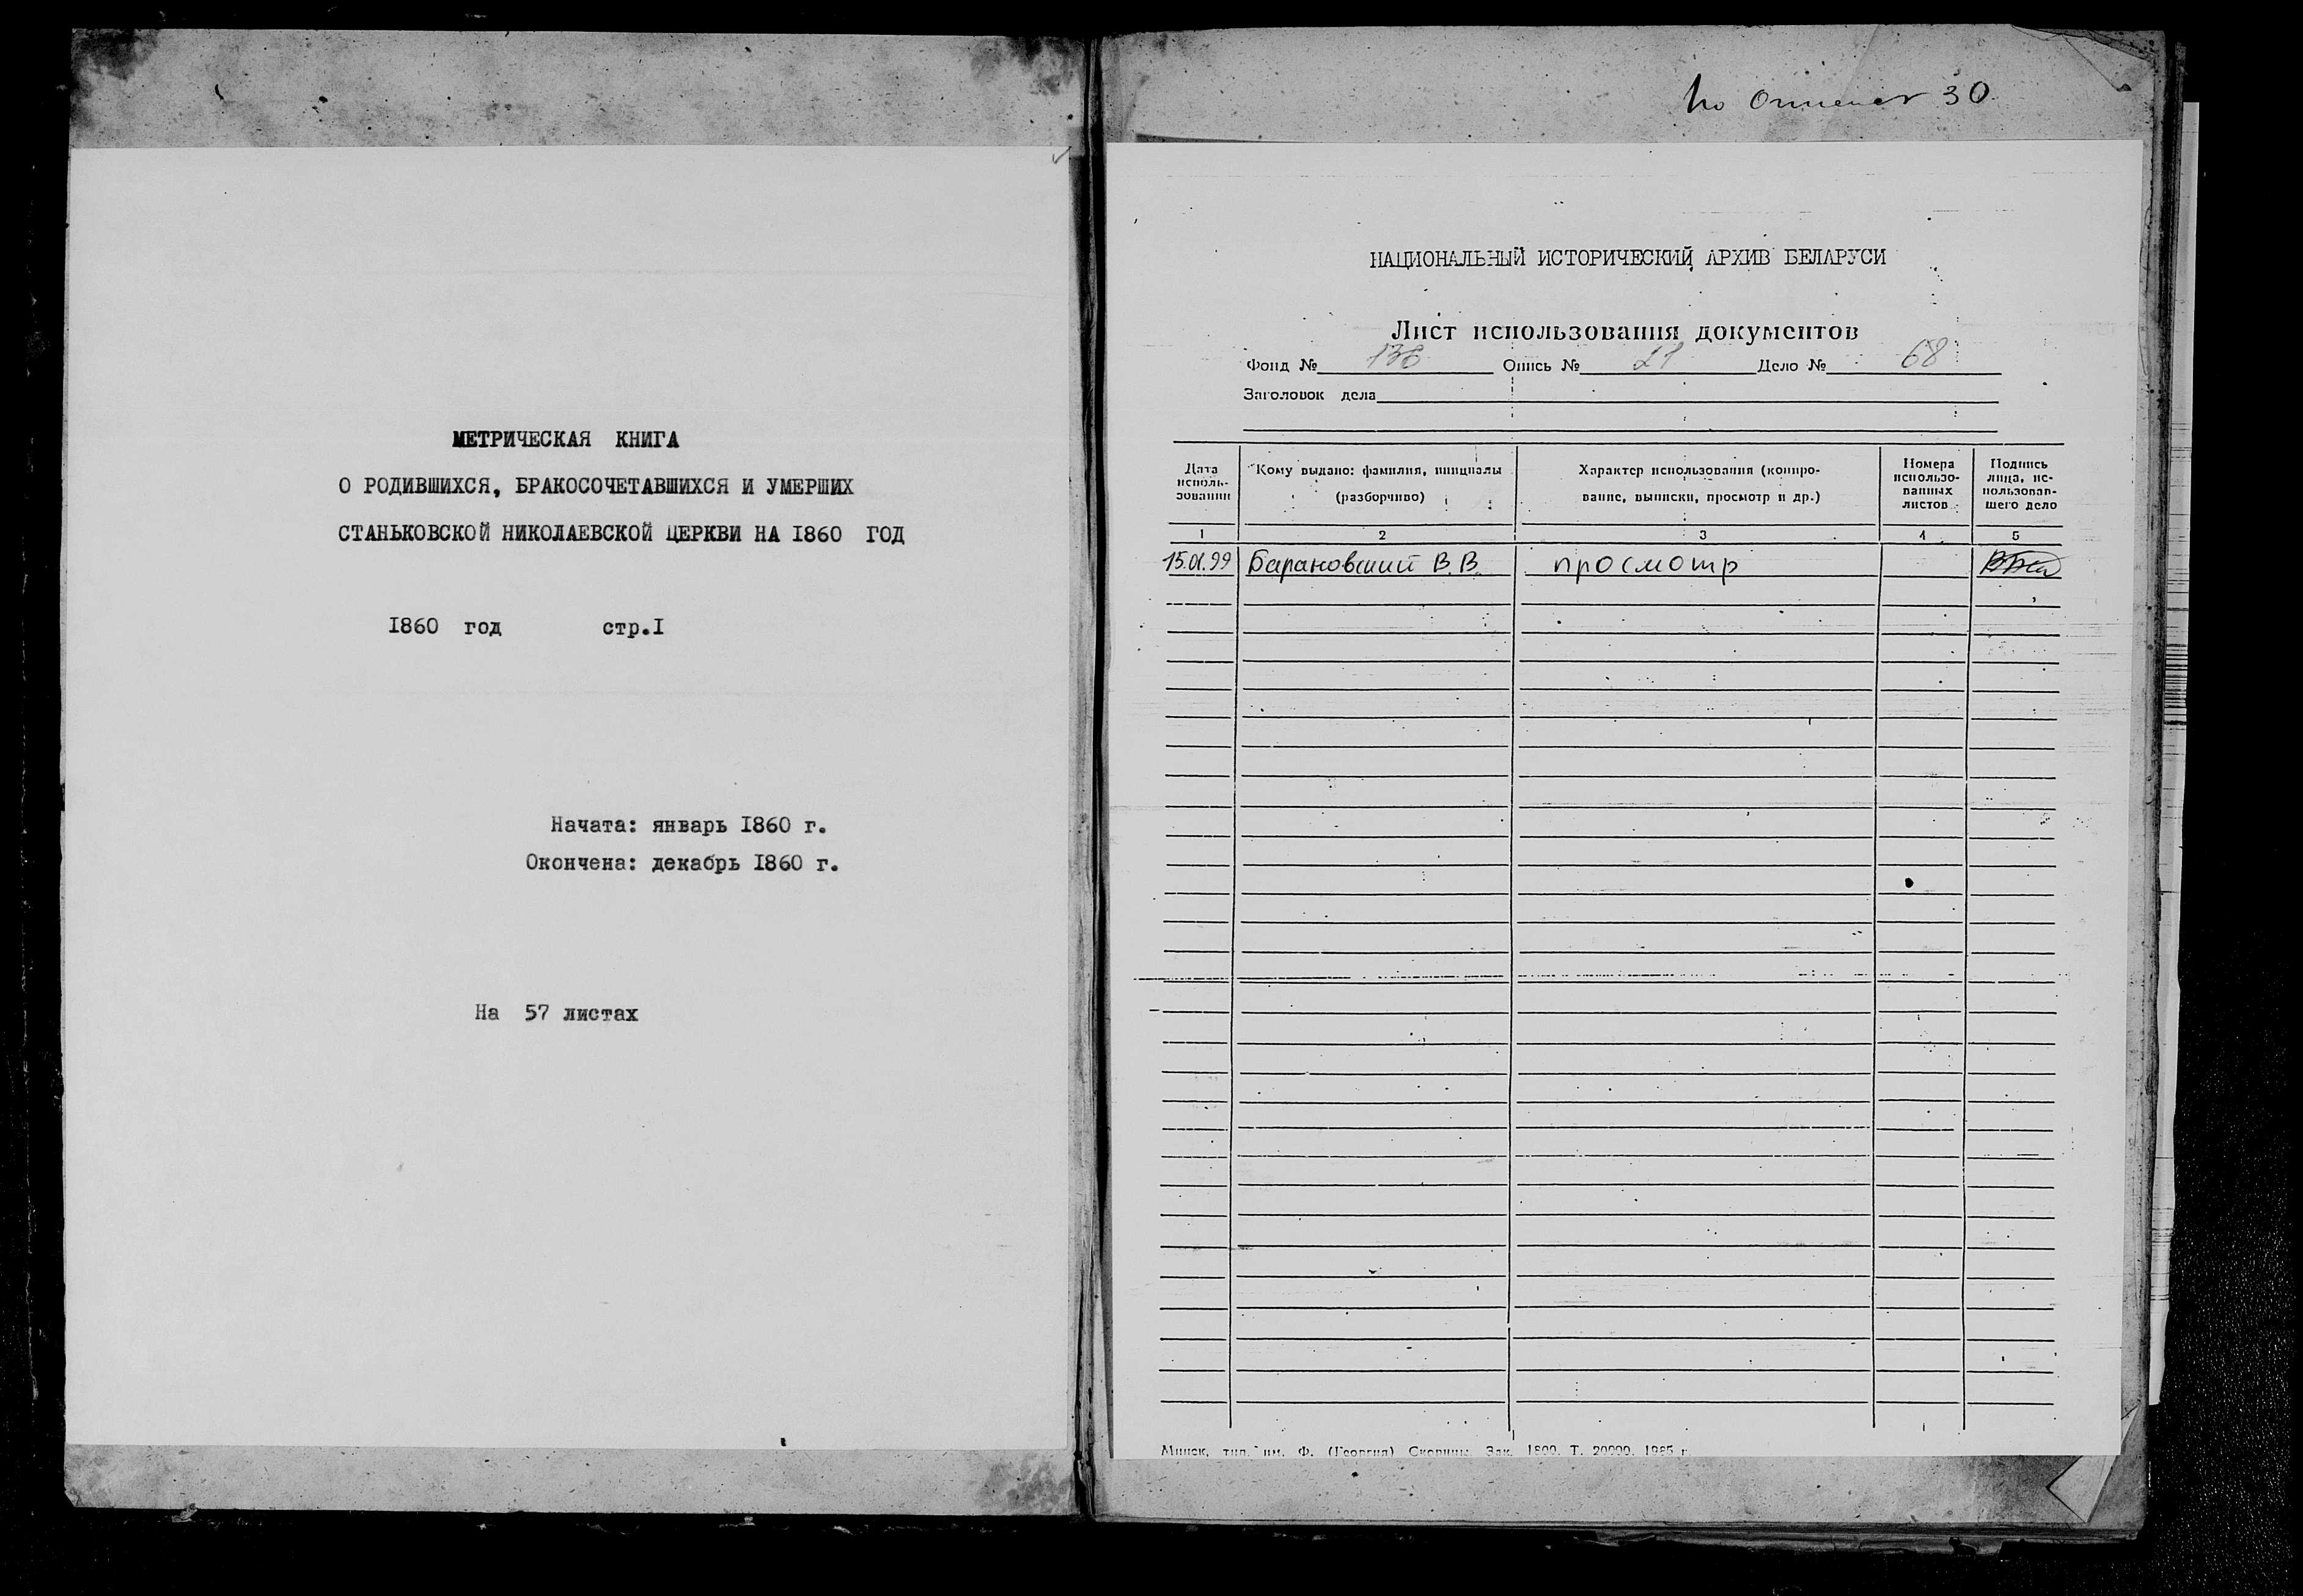 МЕТРИЧЕСКАЯ КНИГА
О РОДИВШИХСЯ, БРАКОСОЧЕТАВШИХСЯ И УМЕРШИХ
СТАНЬКОВСКОЙ НИКОЛАЕВСКОЙ ЦЕРКВИ НА 1860 ГОД
1860 год стр.1
Начата: январь 1860 г.
Окончена: декабрь 1860 г.
На 57 листах
30
НАЦИОНАЛЬНЫЙ ИСТОРИЧЕСКИЙ АРХИВ БЕЛАРУСИ
Лист использования документов
Фонд № 136 Опись № Дело № 68
Заголовок дела
Дата
исполь-
зовании
Кому выдано: фамилия, инициалы
(разборчиво)
Характер использования (копиро-
вание, выписки, просмотр и др.)
Номера
использо-
ванных
листов
Подпись
лица, ис-
пользовав-
шего дело
1 2 3 4 5
15.01.99 Барановский В.В. просмотр
Минск, тип. им. Ф. (Георгия) Скорины. Зак. 1800. Т. 20000. 1985 г.